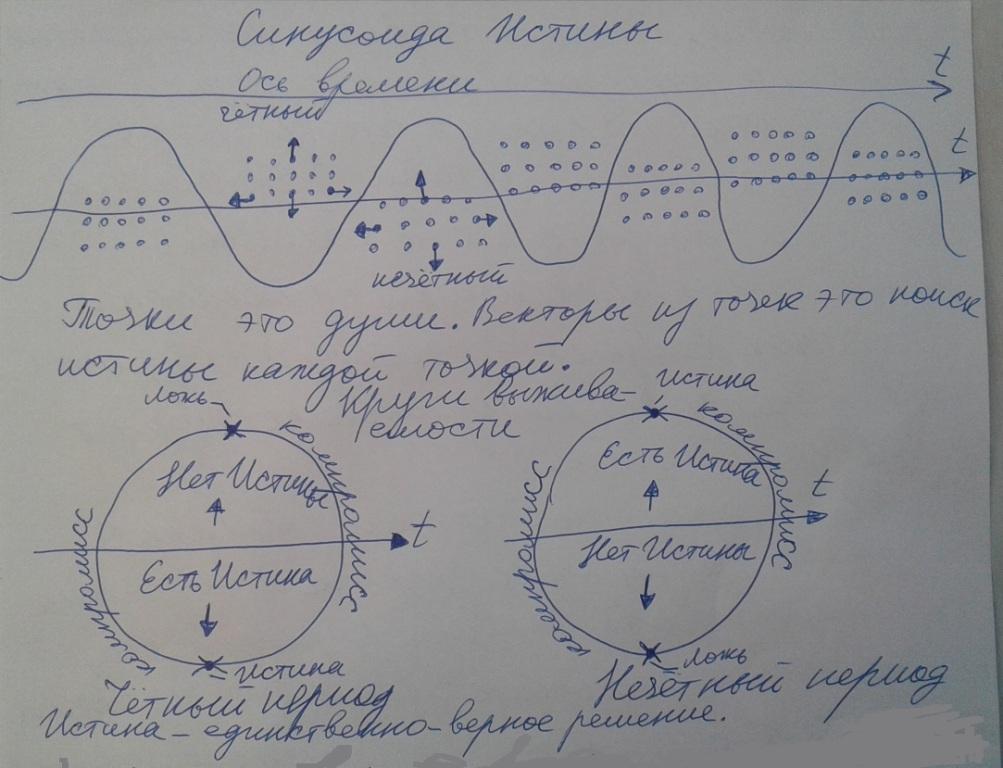 Синусоида Истины
Ось времени
t
чётный
t
нечётный
Точки это души. Векторы из точек это поиск
истины каждой точкой.
Круги выжива-
емости
ложь
компромисс
Нет Истины
t
Есть Истина
компромисс
истина
Чётный период
истина
компромисс
Есть Истина
t
Нет Истины
компромисс
ложь
Нечётный период
Истина – единственно-верное решение.